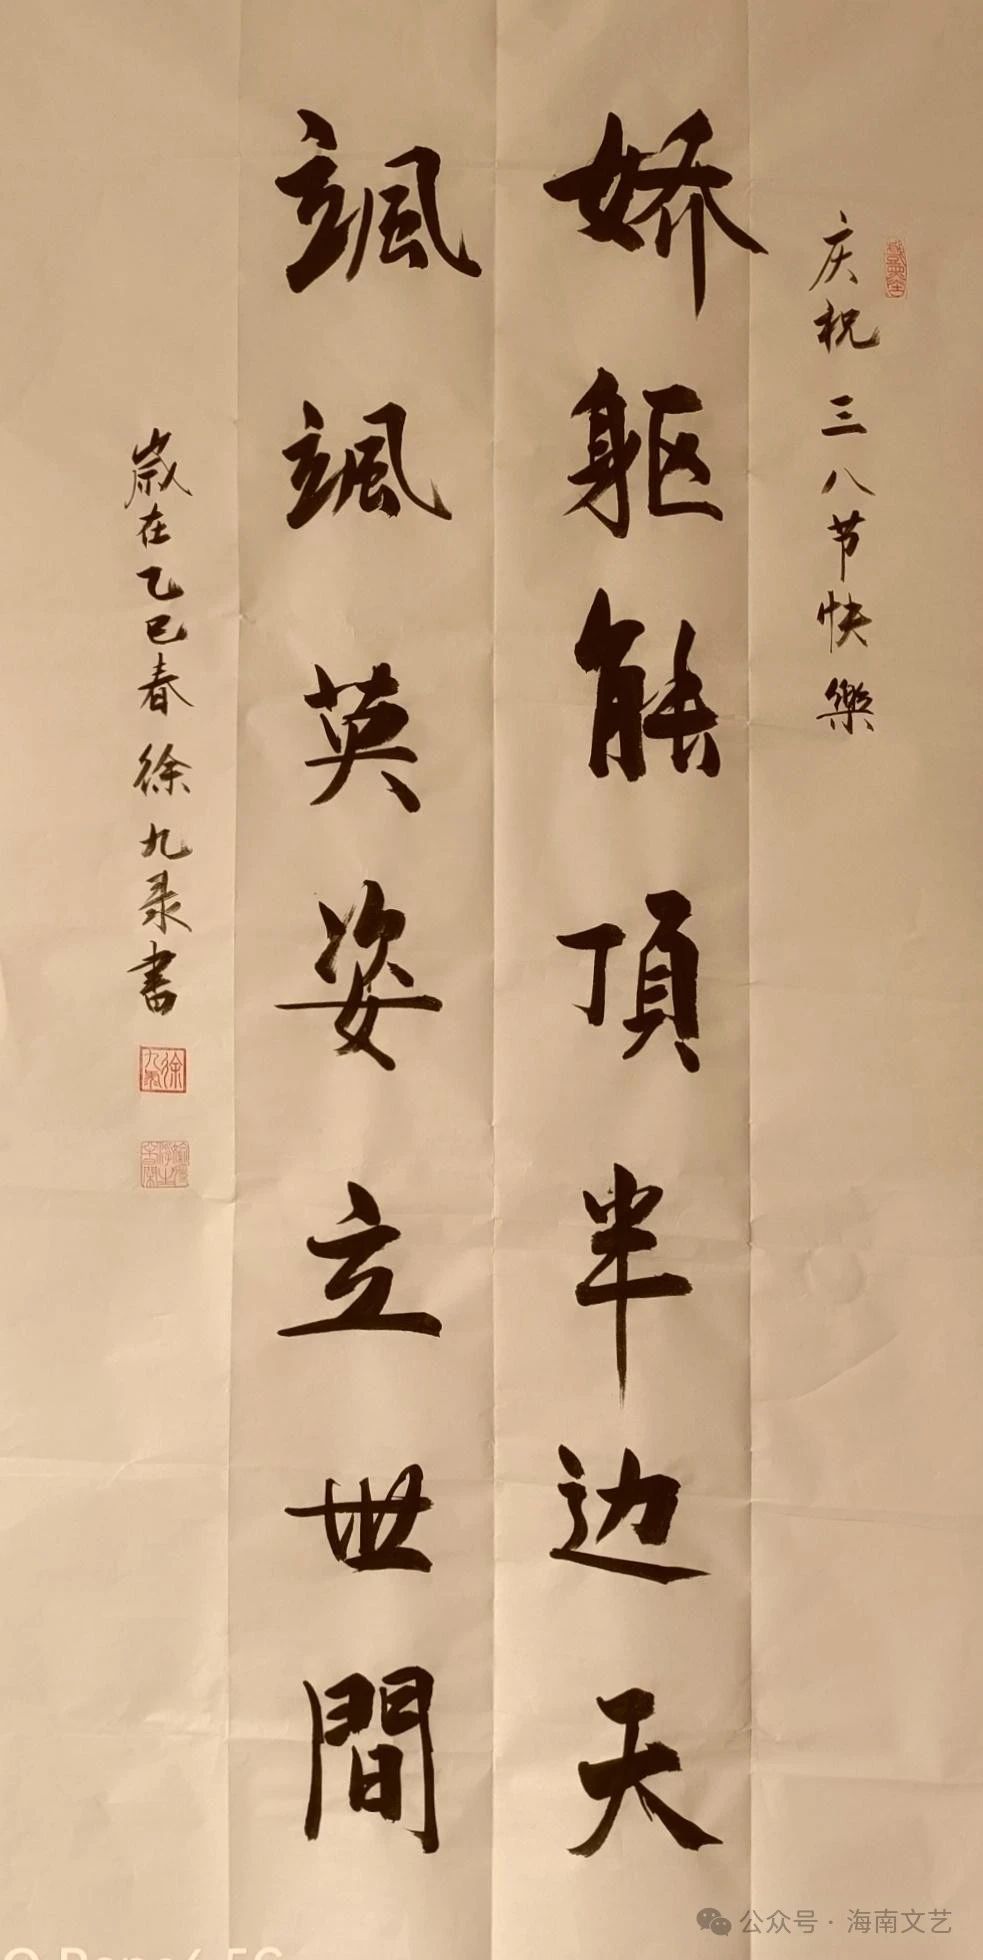 庆祝三八节快樂
娇躯能頂半边天
颯颯英姿立世間
歲在乙巳春徐九录书
徐九录
公众号·海南文艺